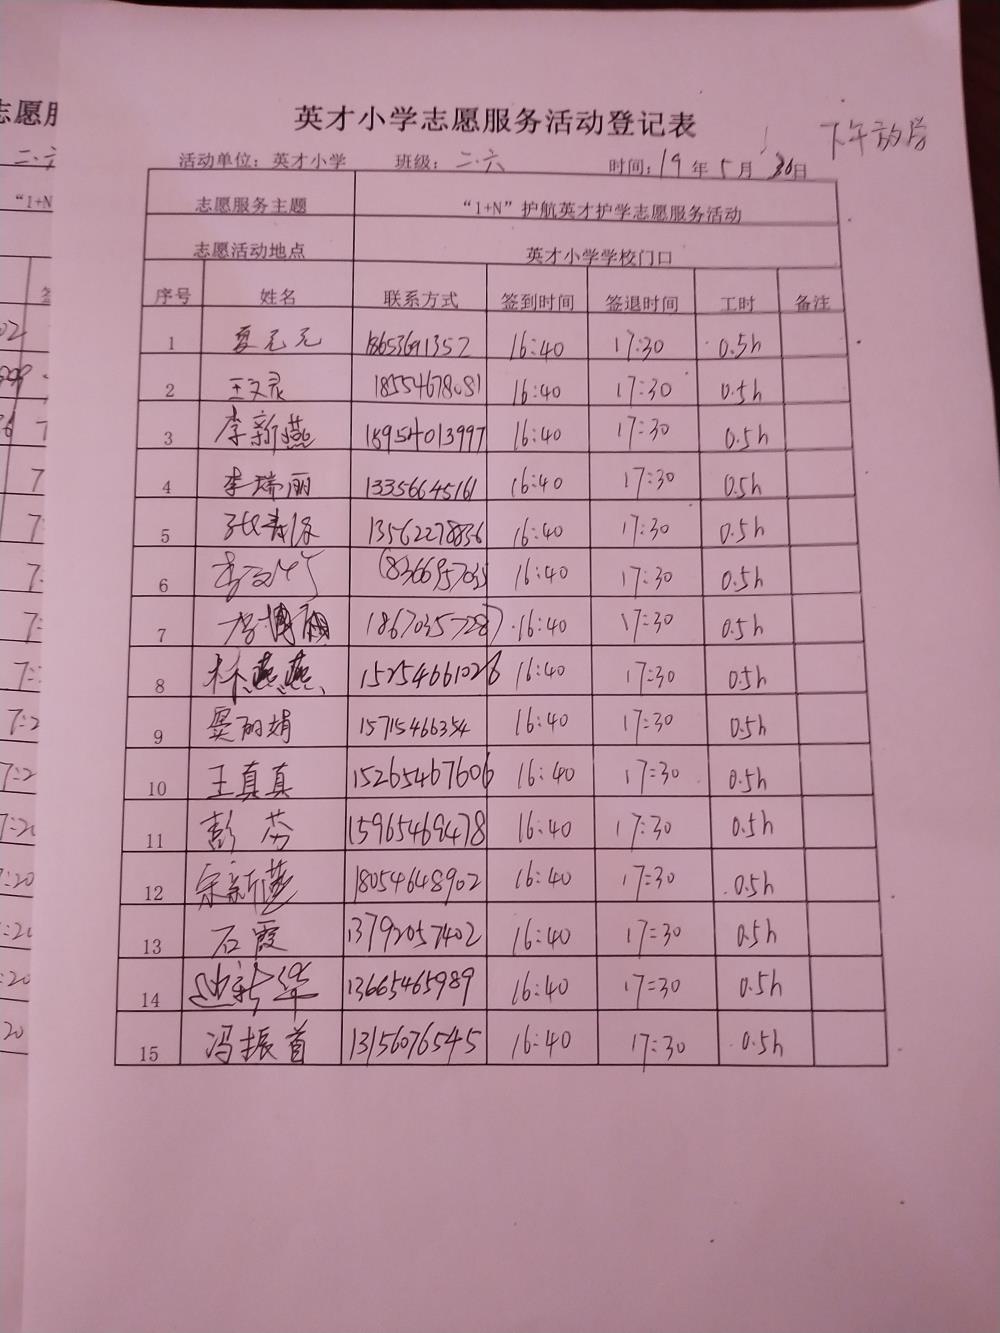 英才小学志愿服务活动登记表
下午放学
活动单位：英才小学 班级：二.六 时间：19年5月30日
志愿服务主题 “1+N”护航英才护学志愿服务活动
志愿活动地点 英才小学学校门口
序号 姓名 联系方式 签到时间 签退时间 工时 备注
1 夏元元 18653691352 16:40 17:30 0.5h
2 王文灵 18554678081 16:40 17:30 0.5h
3 李新燕 18954013997 16:40 17:30 0.5h
4 李瑞丽 13356645161 16:40 17:30 0.5h
5 13562278836 16:40 17:30 0.5h
6 18366957035 16:40 17:30 0.5h
7 18670357287 16:40 17:30 0.5h
8 林燕燕 15254661026 16:40 17:30 0.5h
9 窦丽娟 15715466354 16:40 17:30 0.5h
10 王真真 15265467606 16:40 17:30 0.5h
11 彭芬 15965469478 16:40 17:30 0.5h
12 宋新燕 18054648902 16:40 17:30 0.5h
13 石霞 13792057402 16:40 17:30 0.5h
14 13665465989 16:40 17:30 0.5h
15 冯振首 13156076545 16:40 17:30 0.5h